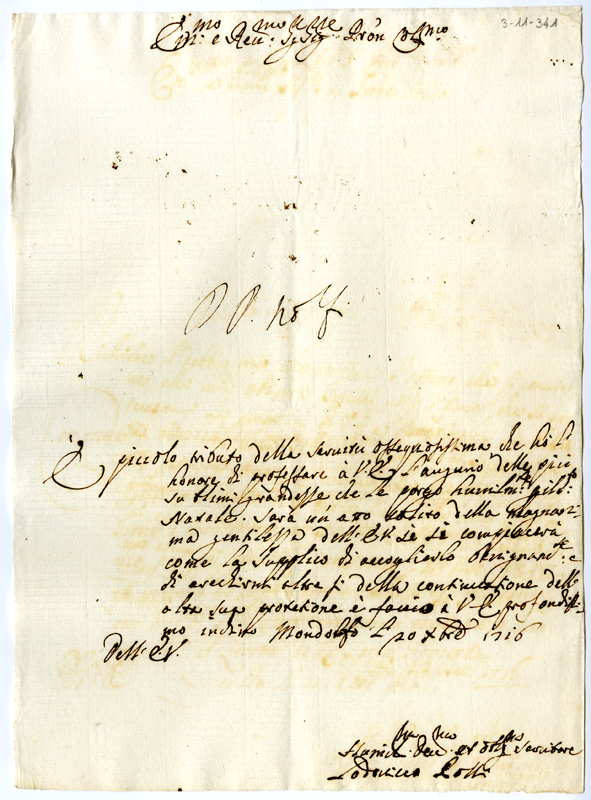 3-11-341
Em.mo e Rev.mo Sig.re Pron Col.mo
È piccolo tributo della servitù ossequiosissima, che hò l'
honore di professare à V. E. l'augurio delle più
sublimi grandezze che le porgo humilm.te nel S.to
Natale. Sarà un atto solito della magnani-
ma gentilezza dell'E.V. se si compiacerà
come la supplico di accoglierlo benignam.te e
di avedermi altresì della continuatione dell'
alta sua protetione e faccio à V. E. profondissi-
mo inchino Mondolfo li 20 Xbre 1716
Dell'E.V.
Humil.mo Dev.mo et Obl.mo Servitore
Lodovico